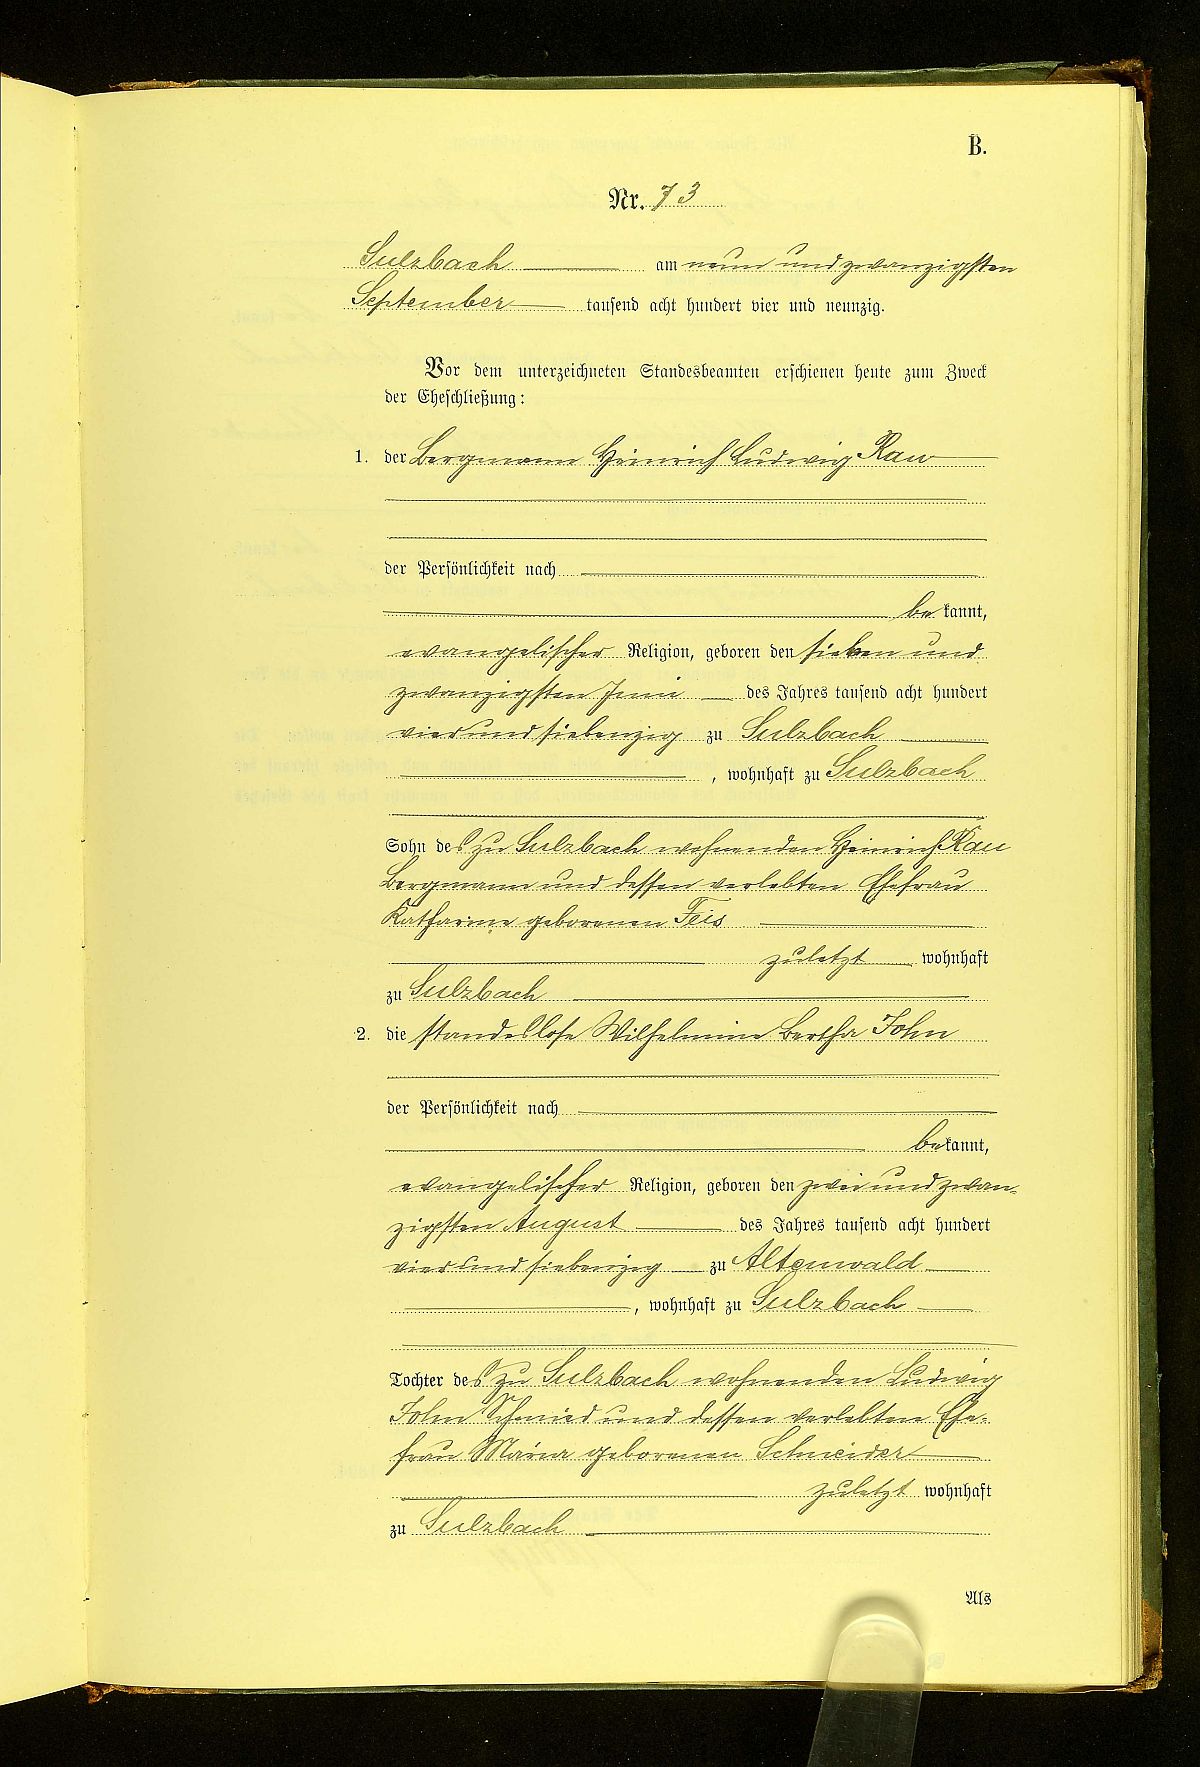 B.
Nr. 73
Sulzbach am neun und zwanzigsten
September tausend acht hundert vier und neunzig.
Vor dem unterzeichneten Standesbeamten erschienen heute zum Zweck
der Eheschließung:
1. der Bergmann Heinrich Ludwig Rau
der Persönlichkeit nach
bekannt,
evangelischer Religion, geboren den sieben und
zwanzigsten Juni des Jahres tausend acht hundert
vier und siebenzig zu Sulzbach
, wohnhaft zu Sulzbach
Sohn des zu Sulzbach wohnenden Heinrich Rau
Bergmann und dessen verlebten Ehefrau
Katharina geborenen Feis
zuletzt wohnhaft
zu Sulzbach
2. die standeslose Wilhelmine Bertha John
der Persönlichkeit nach
bekannt,
evangelischer Religion, geboren den zwei und zwan-
zigsten August des Jahres tausend acht hundert
vier und siebenzig zu Altenwald
, wohnhaft zu Sulzbach
Tochter des zu Sulzbach wohnenden Ludwig
John Schmied und dessen verlebten Ehe-
frau Maria geborenen Schneider
zuletzt wohnhaft
zu Sulzbach
Als